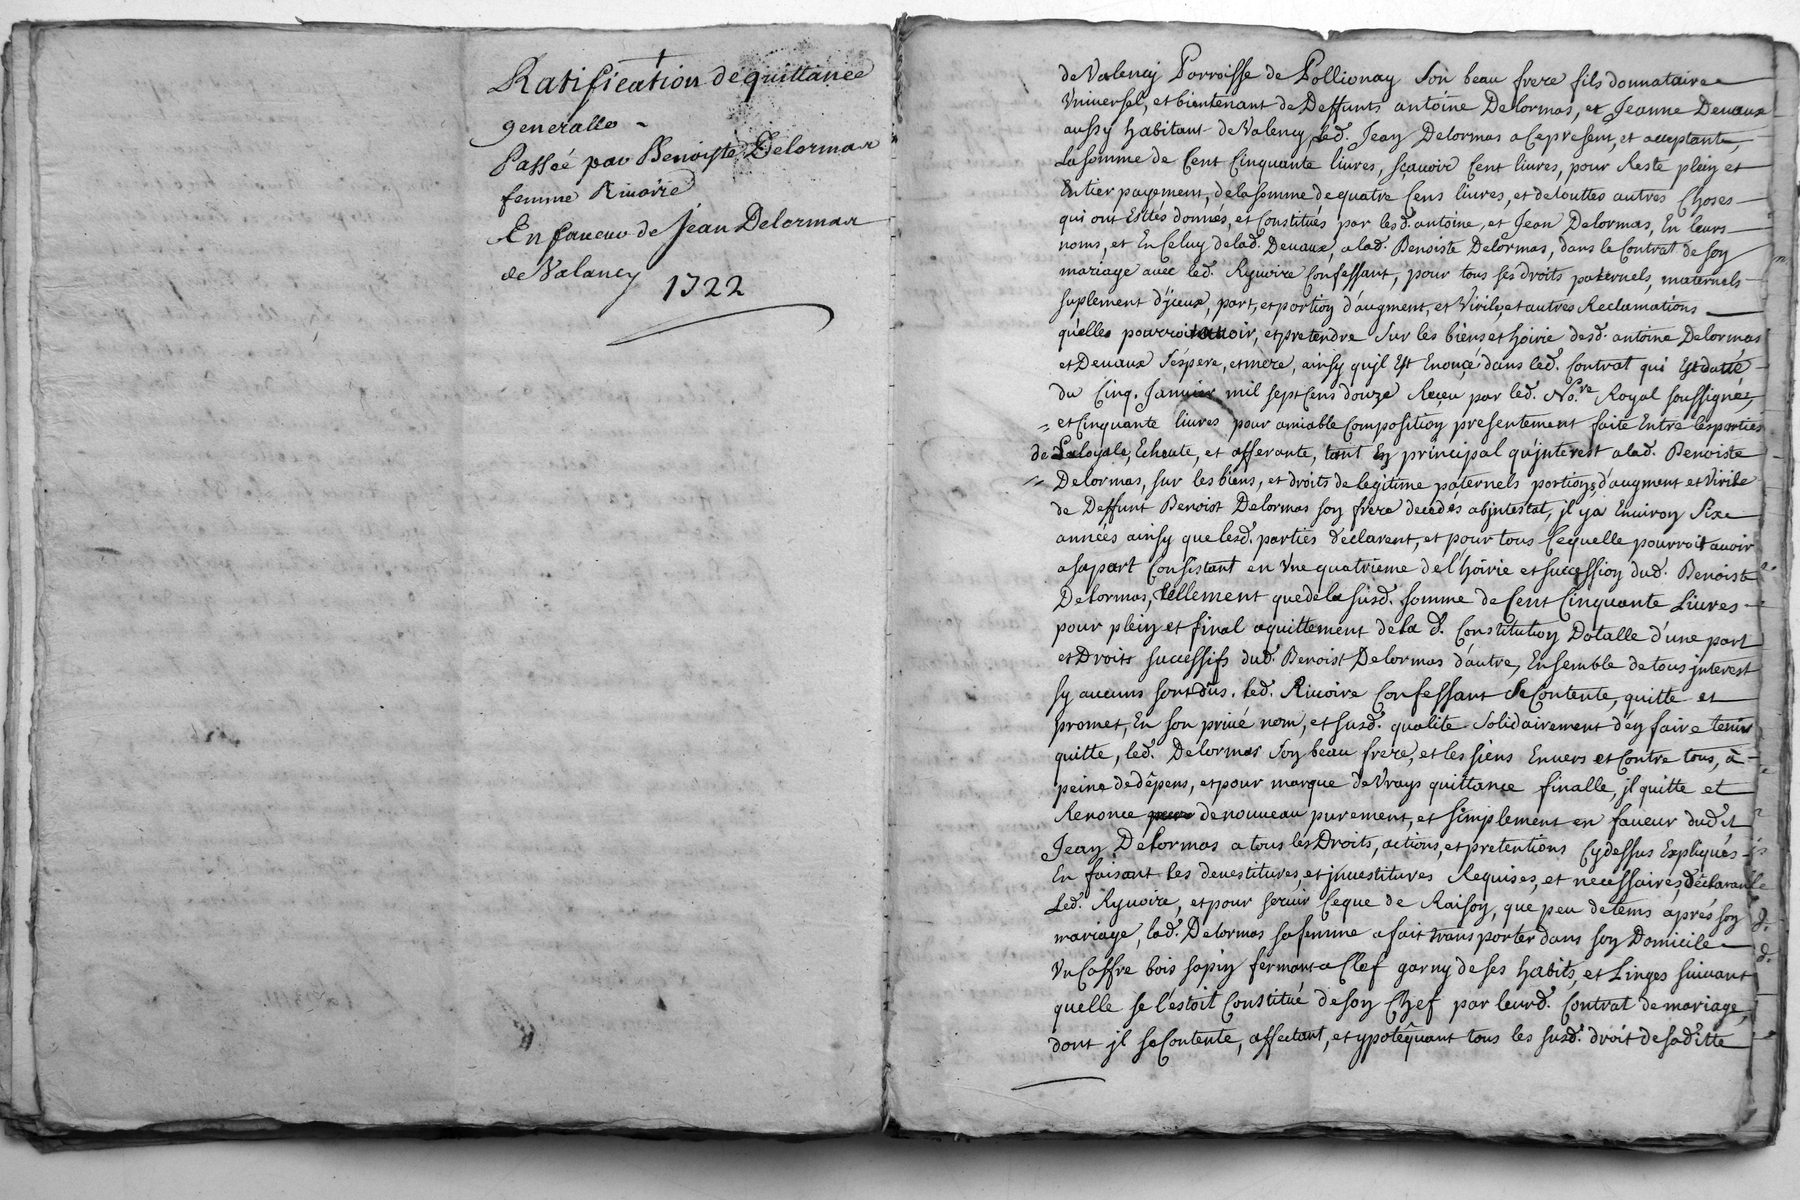 Ratification de quittance
generalle -
Passée par Benoiste Delormas
femme Rivoire
En faveur de Jean Delormas
de Valancy
1722
de Valency Parroisse de Pollionay son beau frere fils donnataire
Vniversel, et bientenant de Deffunts antoine Delormas, et Jeanne Devaux
aussy habitant de Valency led. Jean Delormas a Ce present, et acceptante,
La somme de Cent Cinquante livres, sçavoir Cent livres, pour Reste plein et
Entier payement, de la somme de quatre Cens livres, et de touttes autres Choses
qui ont Estés donnés, et Constitués par lesd. antoine, et Jean Delormas, En leurs
noms, et En Celuy de lad. Devaux, a lad. Benoiste Delormas, dans le Contrat de son
mariage avec led. Ryvoire Confessant, pour tous ses droits paternels, maternels
suplement d'jceux, part, et portion d'augment, et Virile, et autres Reclamations
qu'elles pourroit avoir, et pretendre sur les biens et hoirie desd. antoine Delormas
et Devaux ses pere, et mere, ainsy qu'jl Est Enoncé dans led. Contrat qui Est datté
du Cinq. Janvier mil sept Cens douze Reçeu par led. No.re Royal soussigné,
et Cinquante livres pour amiable Composition presentement faite Entre les parties
de Laloyale, Echeute, et afferante, tant En principal qu'jnterest a lad. Benoiste
Delormas, sur les biens, et droits de legitime paternels portions d'augment et Virile
de Deffunt Benoist Delormas son frere decedés abjntestat, jl y a Environ Six
années ainsy que lesd. parties declarent, et pour tous Ce quelle pourroit avoir
a sa part Consistant en Vne quatrieme de l'hoirie et succession dud. Benoiste
Delormas, tellement que de la susd. somme de Cent Cinquante Livres
pour plein et final aquittement de la d. Constitution Dotalle d'une part
et Droits successifs dud. Benoist Delormas d'autre, Ensemble de tous jnterest
sy aucuns sont dûs. led. Rivoire Confessant se Contente, quitte et
promet, En son privé nom, et susd. qualite solidairement d'en faire tenir
quitte, led. Delormas son beau frere, et les siens Envers et Contre tous, à
peine de dêpens, et pour marque de Vrays quittance finalle, jl quitte et
Renonce de nouveau purement, et simplement en faveur dudit
Jean Delormas a tous les Droits, actions, et pretentions Cydessus Expliqués
En faisant les devestitures, et jnvestitures Requises, et necessaires, déclarant
Led. Ryvoire, et pour servir Ceque de Raison, que peu de tems aprés son
mariage, lad. Delormas sa femme a fait transporter dans son Domicile
Vn Coffre bois sapin fermant a Clef garny de ses habits, et Linges suivant
quelle se l'estoit Constitué de son Chef par leurd. Contrat de mariage,
dont jl se Contente, affectant, et ypotêquant tous les susd. droit de saditte